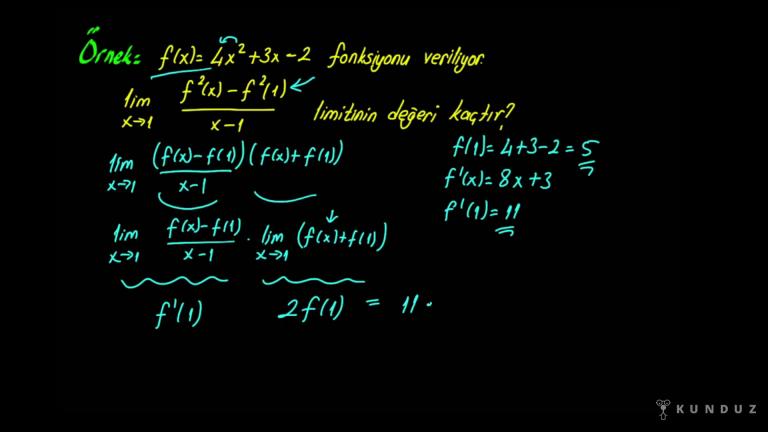 Örnek: f(x)= 4x²+3x-2 fonksiyonu veriliyor.
lim x→1 f²(x) - f²(1) / x-1 limitinin değeri kaçtır?
lim x→1 (f(x)-f(1)) (f(x)+f(1)) / x-1
f(1)= 4+3-2 = 5
f'(x)= 8x+3
f'(1)= 11
lim x→1 f(x)-f(1) / x-1 . lim x→1 (f(x)+f(1))
f'(1) 2f(1) = 11.
KUNDUZ